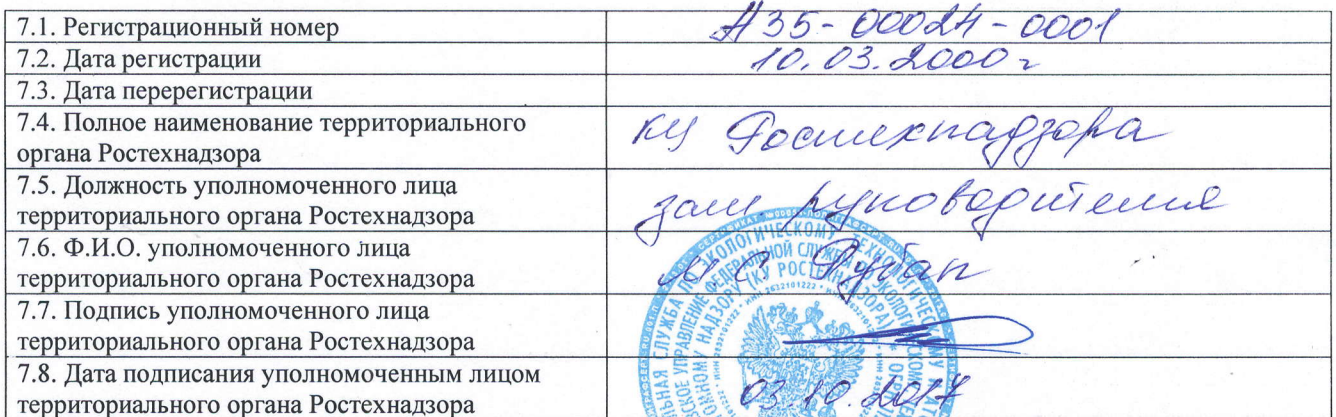 7.1. Регистрационный номер А35-00024-0001
7.2. Дата регистрации 10.03.2000г
7.3. Дата перерегистрации
7.4. Полное наименование территориального
органа Ростехнадзора
КУ Ростехнадзора
7.5. Должность уполномоченного лица
территориального органа Ростехнадзора
зам. руководителя
7.6. Ф.И.О. уполномоченного лица
территориального органа Ростехнадзора
7.7. Подпись уполномоченного лица
территориального органа Ростехнадзора
7.8. Дата подписания уполномоченным лицом
территориального органа Ростехнадзора
03.10.2017